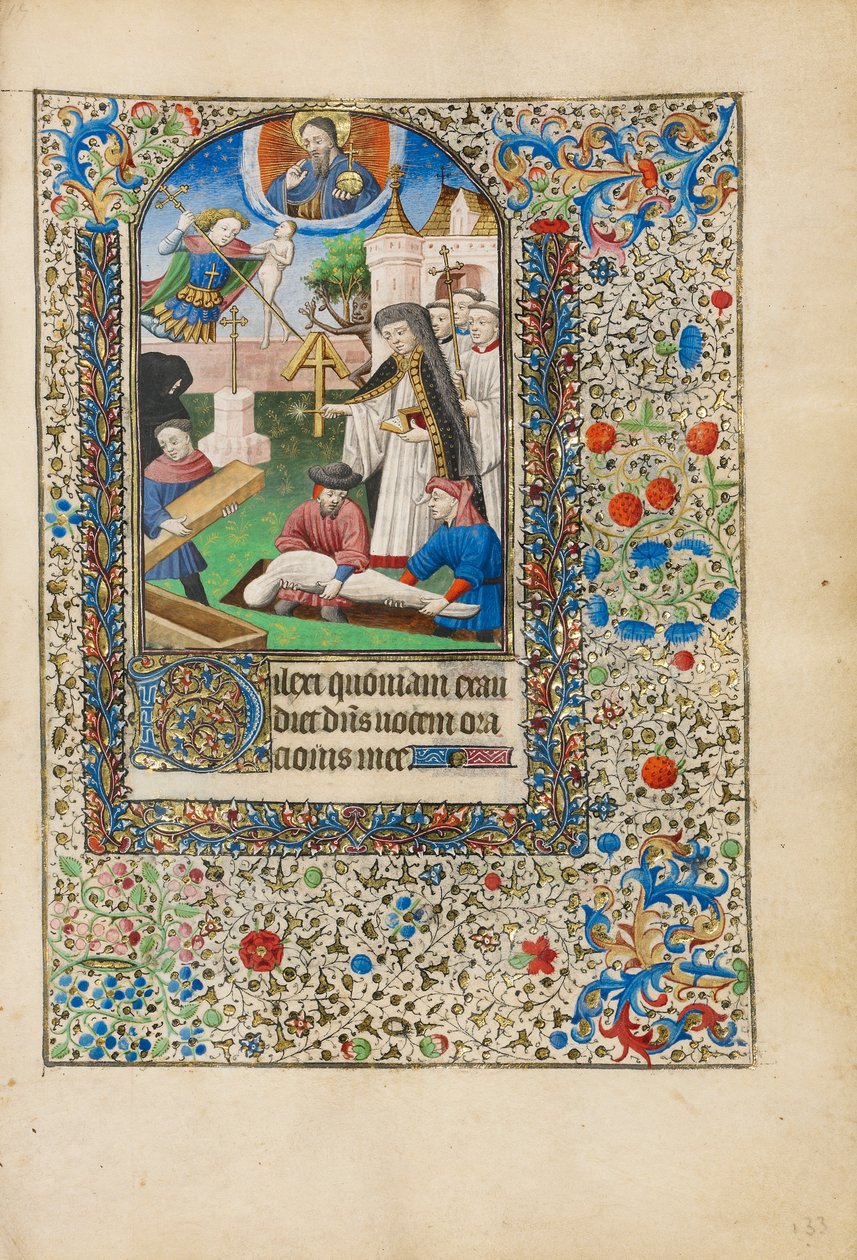 Dilexi quoniam exau
diet dn̄s uocem ora
cionis mee
133